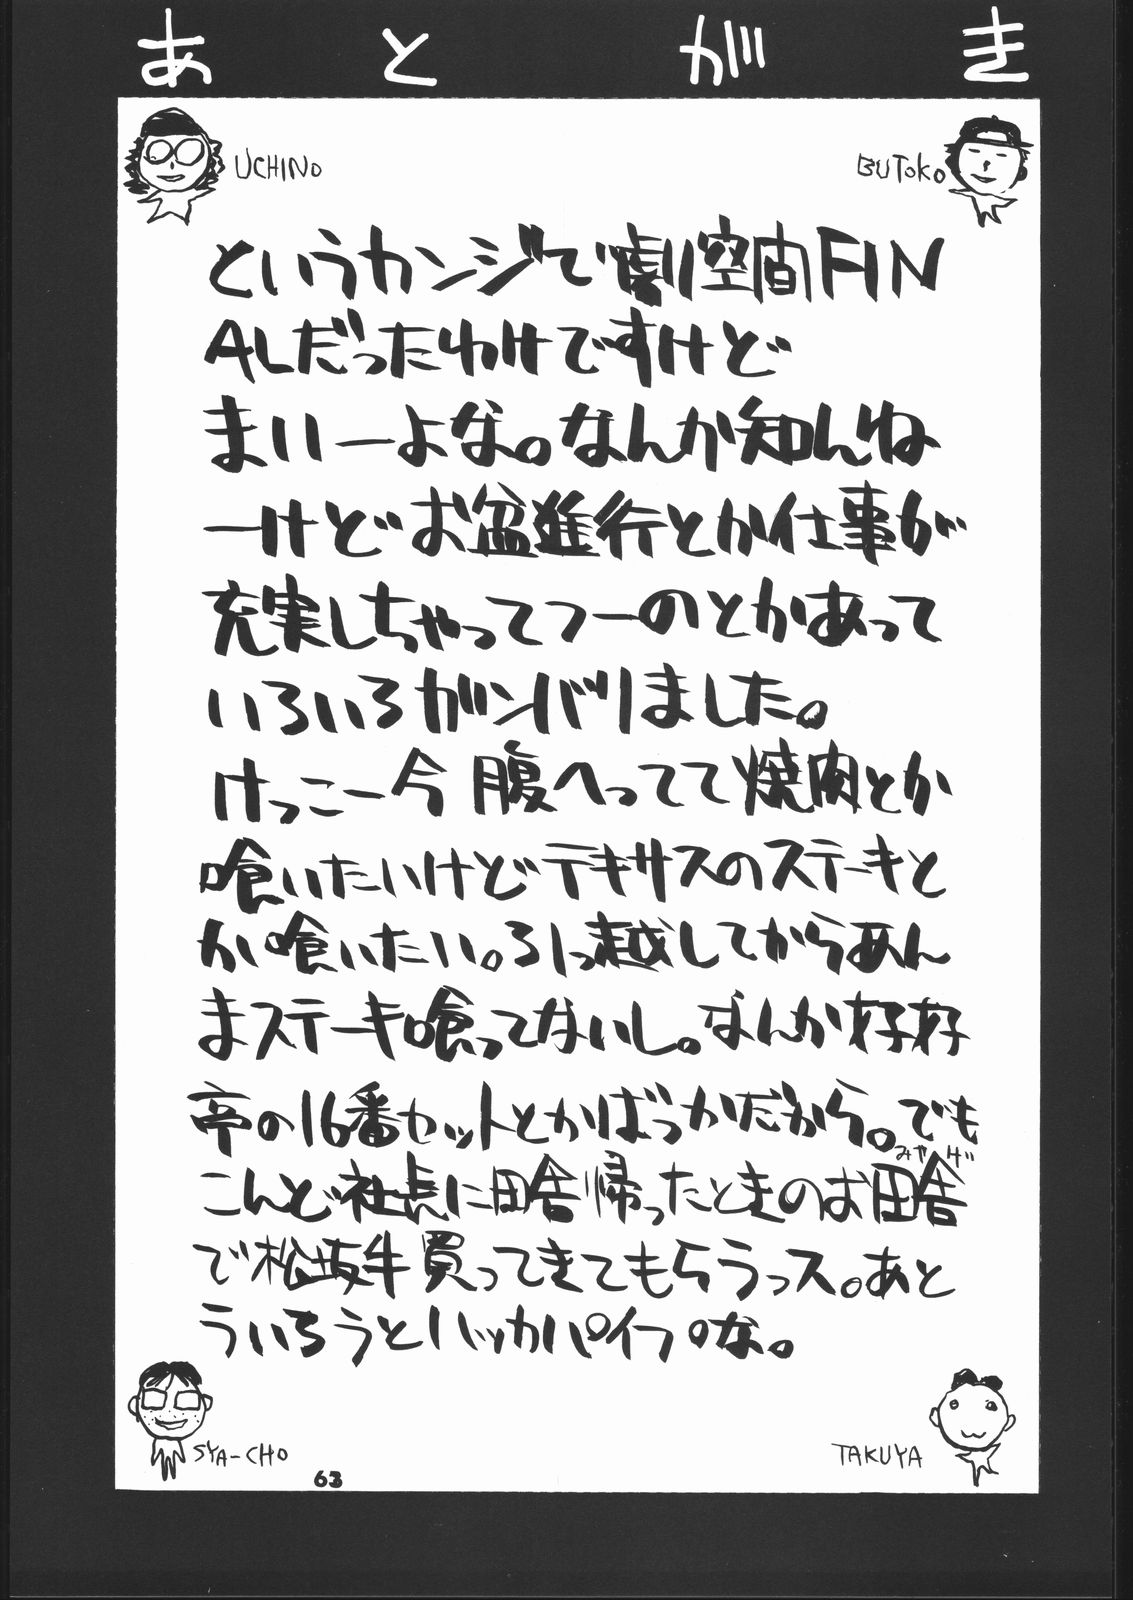 あとがき
UCHINO
BUTOKO
というカンジで劇空間FIN
ALだったわけですけど
まいーよな。なんか知んね
ーけどお盆進行とか仕事が
充実しちゃってつーのとかあって
いろいろガンバリました。
けっこー今腹へってて焼肉とか
喰いたいけどテキサスのステーキと
か喰いたい。引っ越ししてからあん
まステーキ喰ってないし。なんか好好
亭の16番セットとかばっかだから。でも
みやげ
こんど社長に田舎帰ったときのお田舎
で松坂牛買ってきてもらうっス。あと
ういろうとハッカパイプな。
SYA-CHO
TAKUYA
63